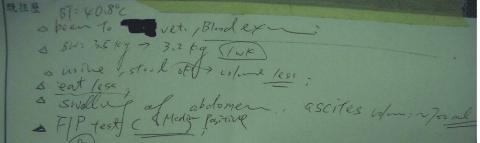 既往歷
BT: 40.8°C
△ been to vet., Blood exm :
△ BW: 3.5 kg → 3.2 kg 1wk
△ urine, stool ok → volume less ;
△ eat less,
△ swelling of abdomen. ascites
△ FIP test C Medium, positive